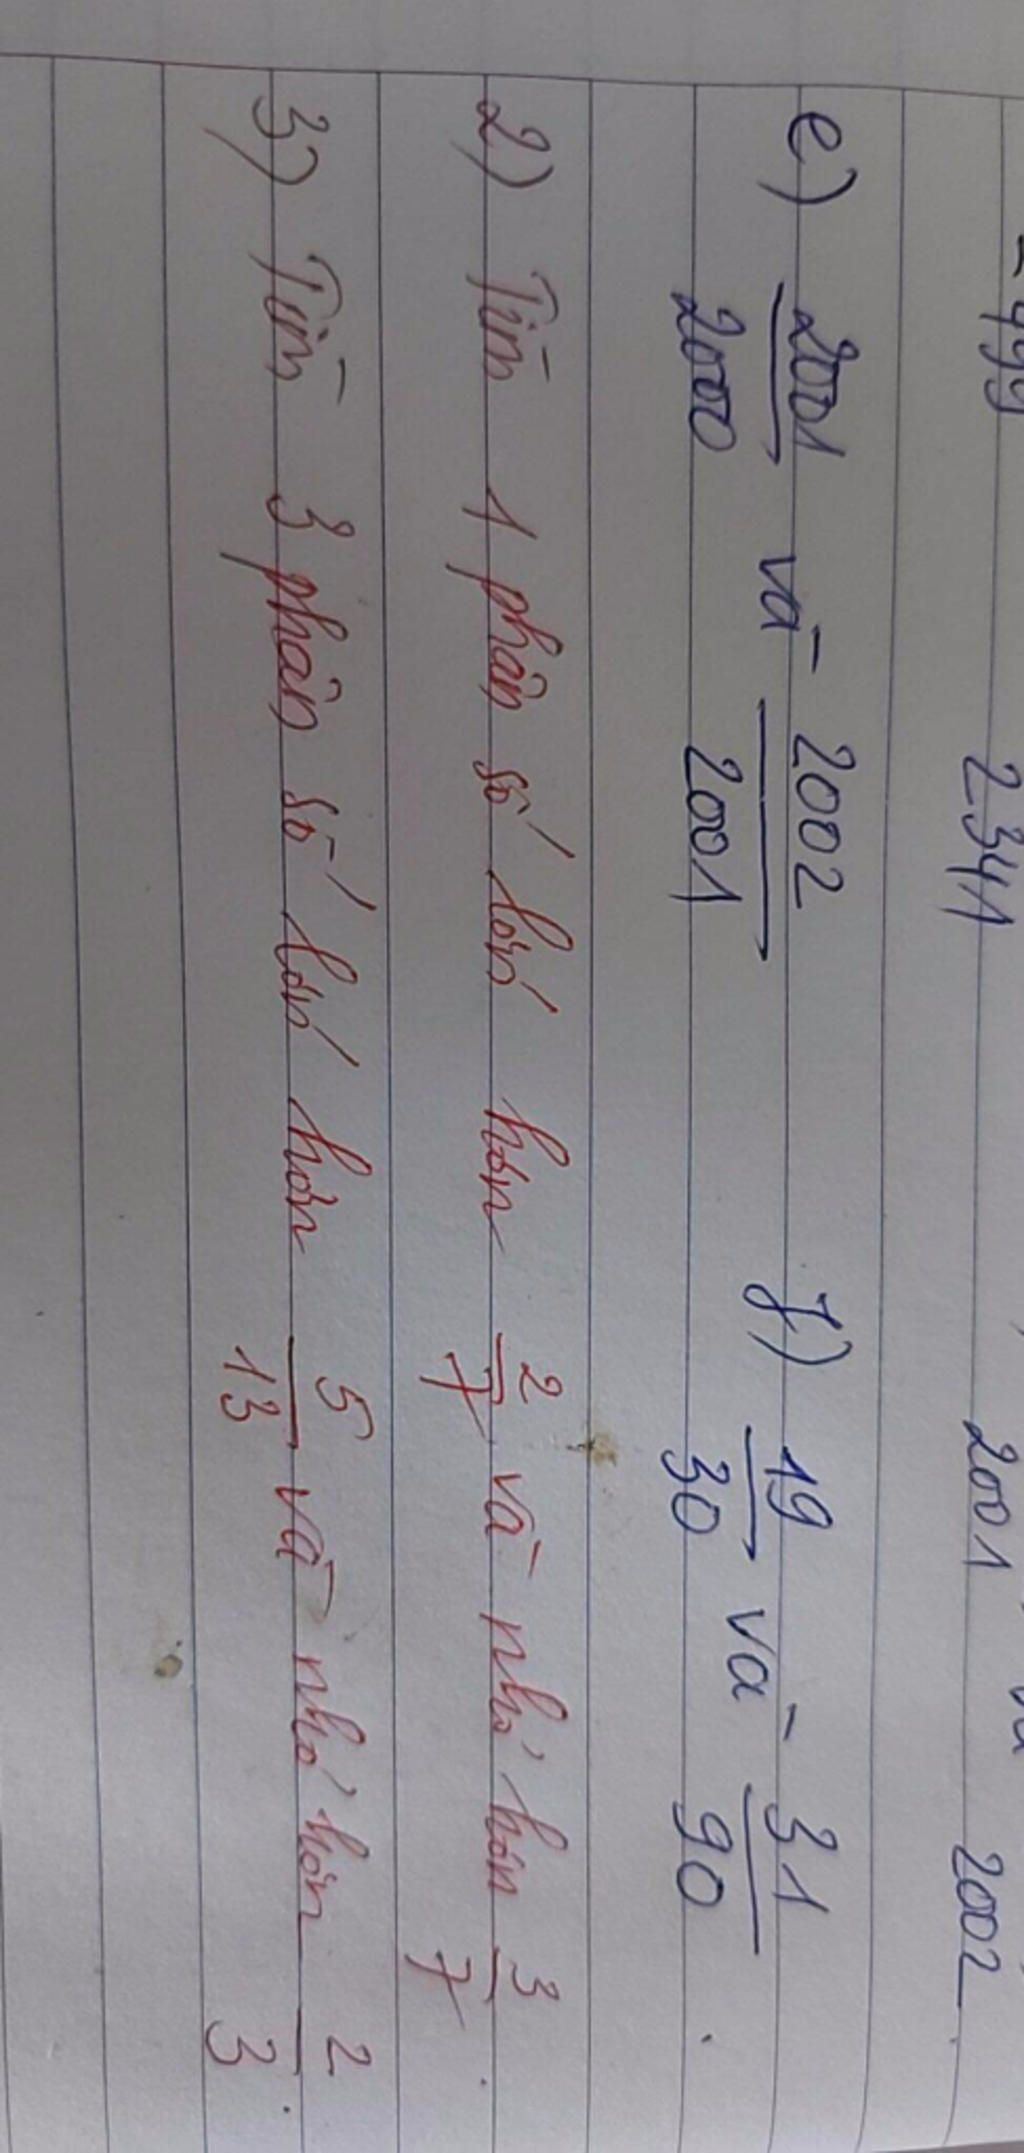 2341 2001 2002
e) 2001/2000 và 2002/2001 f) 19/30 và 31/90.
2) Tìm 1 phân số lớn hơn 2/7 và nhỏ hơn 3/7.
3) Tìm 3 phân số lớn hơn 5/13 và nhỏ hơn 2/3.